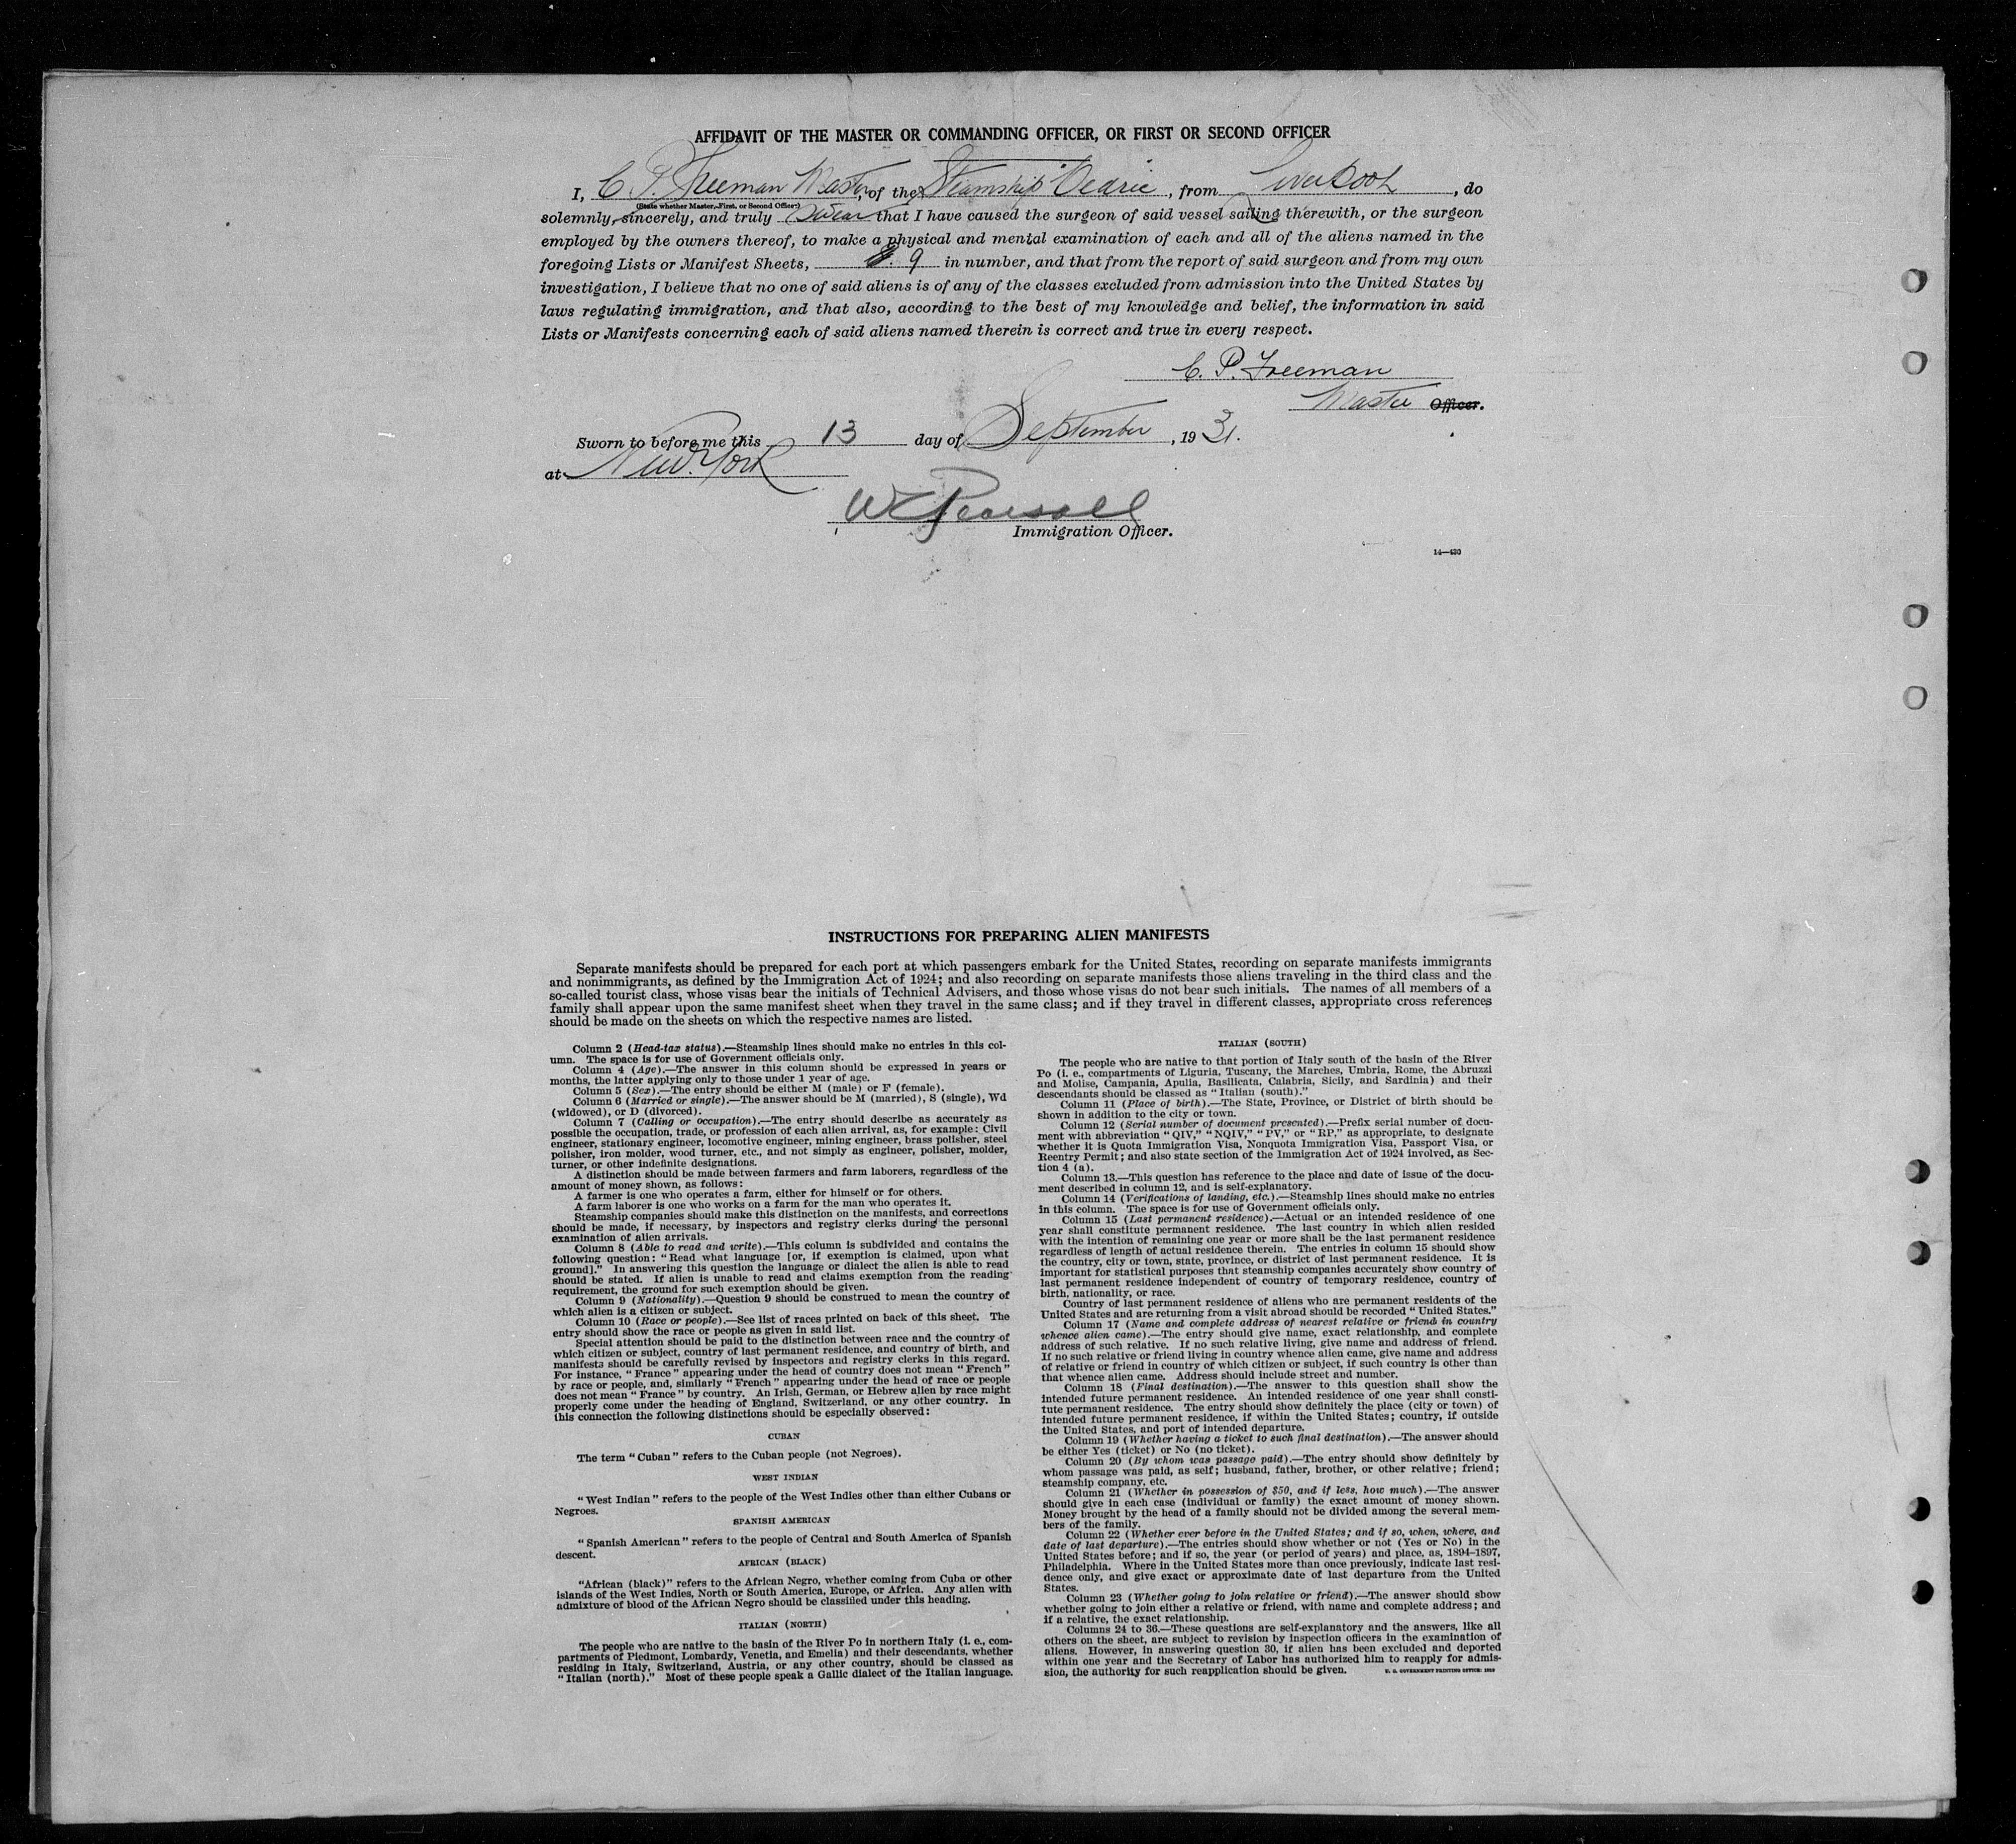 AFFIDAVIT OF THE MASTER OR COMMANDING OFFICER, OR FIRST OR SECOND OFFICER
I, C. P. Freeman Master, of the Steamship Cedric, from Liverpool, do
(State whether Master, First, or Second Officer)
solemnly, sincerely, and truly swear that I have caused the surgeon of said vessel sailing therewith, or the surgeon
employed by the owners thereof, to make a physical and mental examination of each and all of the aliens named in the
foregoing Lists or Manifest Sheets, 9 in number, and that from the report of said surgeon and from my own
investigation, I believe that no one of said aliens is of any of the classes excluded from admission into the United States by
laws regulating immigration, and that also, according to the best of my knowledge and belief, the information in said
Lists or Manifests concerning each of said aliens named therein is correct and true in every respect.
C. P. Freeman
Master Officer.
Sworn to before me this 13 day of September, 1931.
at New York
W Pearsall
Immigration Officer.
14—430
INSTRUCTIONS FOR PREPARING ALIEN MANIFESTS
Separate manifests should be prepared for each port at which passengers embark for the United States, recording on separate manifests immigrants
and nonimmigrants, as defined by the Immigration Act of 1924; and also recording on separate manifests those aliens traveling in the third class and the
so-called tourist class, whose visas bear the initials of Technical Advisers, and those whose visas do not bear such initials. The names of all members of a
family shall appear upon the same manifest sheet when they travel in the same class; and if they travel in different classes, appropriate cross references
should be made on the sheets on which the respective names are listed.
Column 2 (Head-tax status).—Steamship lines should make no entries in this col-
umn. The space is for use of Government officials only.
Column 4 (Age).—The answer in this column should be expressed in years or
months, the latter applying only to those under 1 year of age.
Column 5 (Sex).—The entry should be either M (male) or F (female).
Column 6 (Married or single).—The answer should be M (married), S (single), Wd
(widowed), or D (divorced).
Column 7 (Calling or occupation).—The entry should describe as accurately as
possible the occupation, trade, or profession of each alien arrival, as, for example: Civil
engineer, stationary engineer, locomotive engineer, mining engineer, brass polisher, steel
polisher, iron molder, wood turner, etc., and not simply as engineer, polisher, molder,
turner, or other indefinite designations.
A distinction should be made between farmers and farm laborers, regardless of the
amount of money shown, as follows:
A farmer is one who operates a farm, either for himself or for others.
A farm laborer is one who works on a farm for the man who operates it.
Steamship companies should make this distinction on the manifests, and corrections
should be made, if necessary, by inspectors and registry clerks during the personal
examination of alien arrivals.
Column 8 (Able to read and write).—This column is subdivided and contains the
following question: "Read what language [or, if exemption is claimed, upon what
ground]." In answering this question the language or dialect the alien is able to read
should be stated. If alien is unable to read and claims exemption from the reading
requirement, the ground for such exemption should be given.
Column 9 (Nationality).—Question 9 should be construed to mean the country of
which alien is a citizen or subject.
Column 10 (Race or people).—See list of races printed on back of this sheet. The
entry should show the race or people as given in said list.
Special attention should be paid to the distinction between race and the country of
which citizen or subject, country of last permanent residence, and country of birth, and
manifests should be carefully revised by inspectors and registry clerks in this regard.
For instance, "France" appearing under the head of country does not mean "French"
by race or people, and, similarly "French" appearing under the head of race or people
does not mean "France" by country. An Irish, German, or Hebrew alien by race might
properly come under the heading of England, Switzerland, or any other country. In
this connection the following distinctions should be especially observed:
CUBAN
The term "Cuban" refers to the Cuban people (not Negroes).
WEST INDIAN
"West Indian" refers to the people of the West Indies other than either Cubans or
Negroes.
SPANISH AMERICAN
"Spanish American" refers to the people of Central and South America of Spanish
descent.
AFRICAN (BLACK)
"African (black)" refers to the African Negro, whether coming from Cuba or other
islands of the West Indies, North or South America, Europe, or Africa. Any alien with
admixture of blood of the African Negro should be classified under this heading.
ITALIAN (NORTH)
The people who are native to the basin of the River Po in northern Italy (i. e., com-
partments of Piedmont, Lombardy, Venetia, and Emelia) and their descendants, whether
residing in Italy, Switzerland, Austria, or any other country, should be classed as
"Italian (north)." Most of these people speak a Gallic dialect of the Italian language.
ITALIAN (SOUTH)
The people who are native to that portion of Italy south of the basin of the River
Po (i. e., compartments of Liguria, Tuscany, the Marches, Umbria, Rome, the Abruzzi
and Molise, Campania, Apulia, Basilicata, Calabria, Sicily, and Sardinia) and their
descendants should be classed as "Italian (south)."
Column 11 (Place of birth).—The State, Province, or District of birth should be
shown in addition to the city or town.
Column 12 (Serial number of document presented).—Prefix serial number of docu-
ment with abbreviation "QIV," "NQIV," "PV," or "RP," as appropriate, to designate
whether it is Quota Immigration Visa, Nonquota Immigration Visa, Passport Visa, or
Reentry Permit; and also state section of the Immigration Act of 1924 involved, as Sec-
tion 4 (a).
Column 13.—This question has reference to the place and date of issue of the docu-
ment described in column 12, and is self-explanatory.
Column 14 (Verifications of landing, etc.).—Steamship lines should make no entries
in this column. The space is for use of Government officials only.
Column 15 (Last permanent residence).—Actual or an intended residence of one
year shall constitute permanent residence. The last country in which alien resided
with the intention of remaining one year or more shall be the last permanent residence
regardless of length of actual residence therein. The entries in column 15 should show
the country, city or town, state, province, or district of last permanent residence. It is
important for statistical purposes that steamship companies accurately show country of
last permanent residence independent of country of temporary residence, country of
birth, nationality, or race.
Country of last permanent residence of aliens who are permanent residents of the
United States and are returning from a visit abroad should be recorded "United States."
Column 17 (Name and complete address of nearest relative or friend in country
whence alien came).—The entry should give name, exact relationship, and complete
address of such relative. If no such relative living, give name and address of friend.
If no such relative or friend living in country whence alien came, give name and address
of relative or friend in country of which citizen or subject, if such country is other than
that whence alien came. Address should include street and number.
Column 18 (Final destination).—The answer to this question shall show the
intended future permanent residence. An intended residence of one year shall consti-
tute permanent residence. The entry should show definitely the place (city or town) of
intended future permanent residence, if within the United States; country, if outside
the United States, and port of intended departure.
Column 19 (Whether having a ticket to such final destination).—The answer should
be either Yes (ticket) or No (no ticket).
Column 20 (By whom was passage paid).—The entry should show definitely by
whom passage was paid, as self; husband, father, brother, or other relative; friend;
steamship company, etc.
Column 21 (Whether in possession of $50, and if less, how much).—The answer
should give in each case (individual or family) the exact amount of money shown.
Money brought by the head of a family should not be divided among the several mem-
bers of the family.
Column 22 (Whether ever before in the United States; and if so, when, where, and
date of last departure).—The entries should show whether or not (Yes or No) in the
United States before; and if so, the year (or period of years) and place, as, 1894-1897,
Philadelphia. Where in the United States more than once previously, indicate last resi-
dence only, and give exact or approximate date of last departure from the United
States.
Column 23 (Whether going to join relative or friend).—The answer should show
whether going to join either a relative or friend, with name and complete address; and
if a relative, the exact relationship.
Columns 24 to 36.—These questions are self-explanatory and the answers, like all
others on the sheet, are subject to revision by inspection officers in the examination of
aliens. However, in answering question 30, if alien has been excluded and deported
within one year and the Secretary of Labor has authorized him to reapply for admis-
sion, the authority for such reapplication should be given.
U. S. GOVERNMENT PRINTING OFFICE: